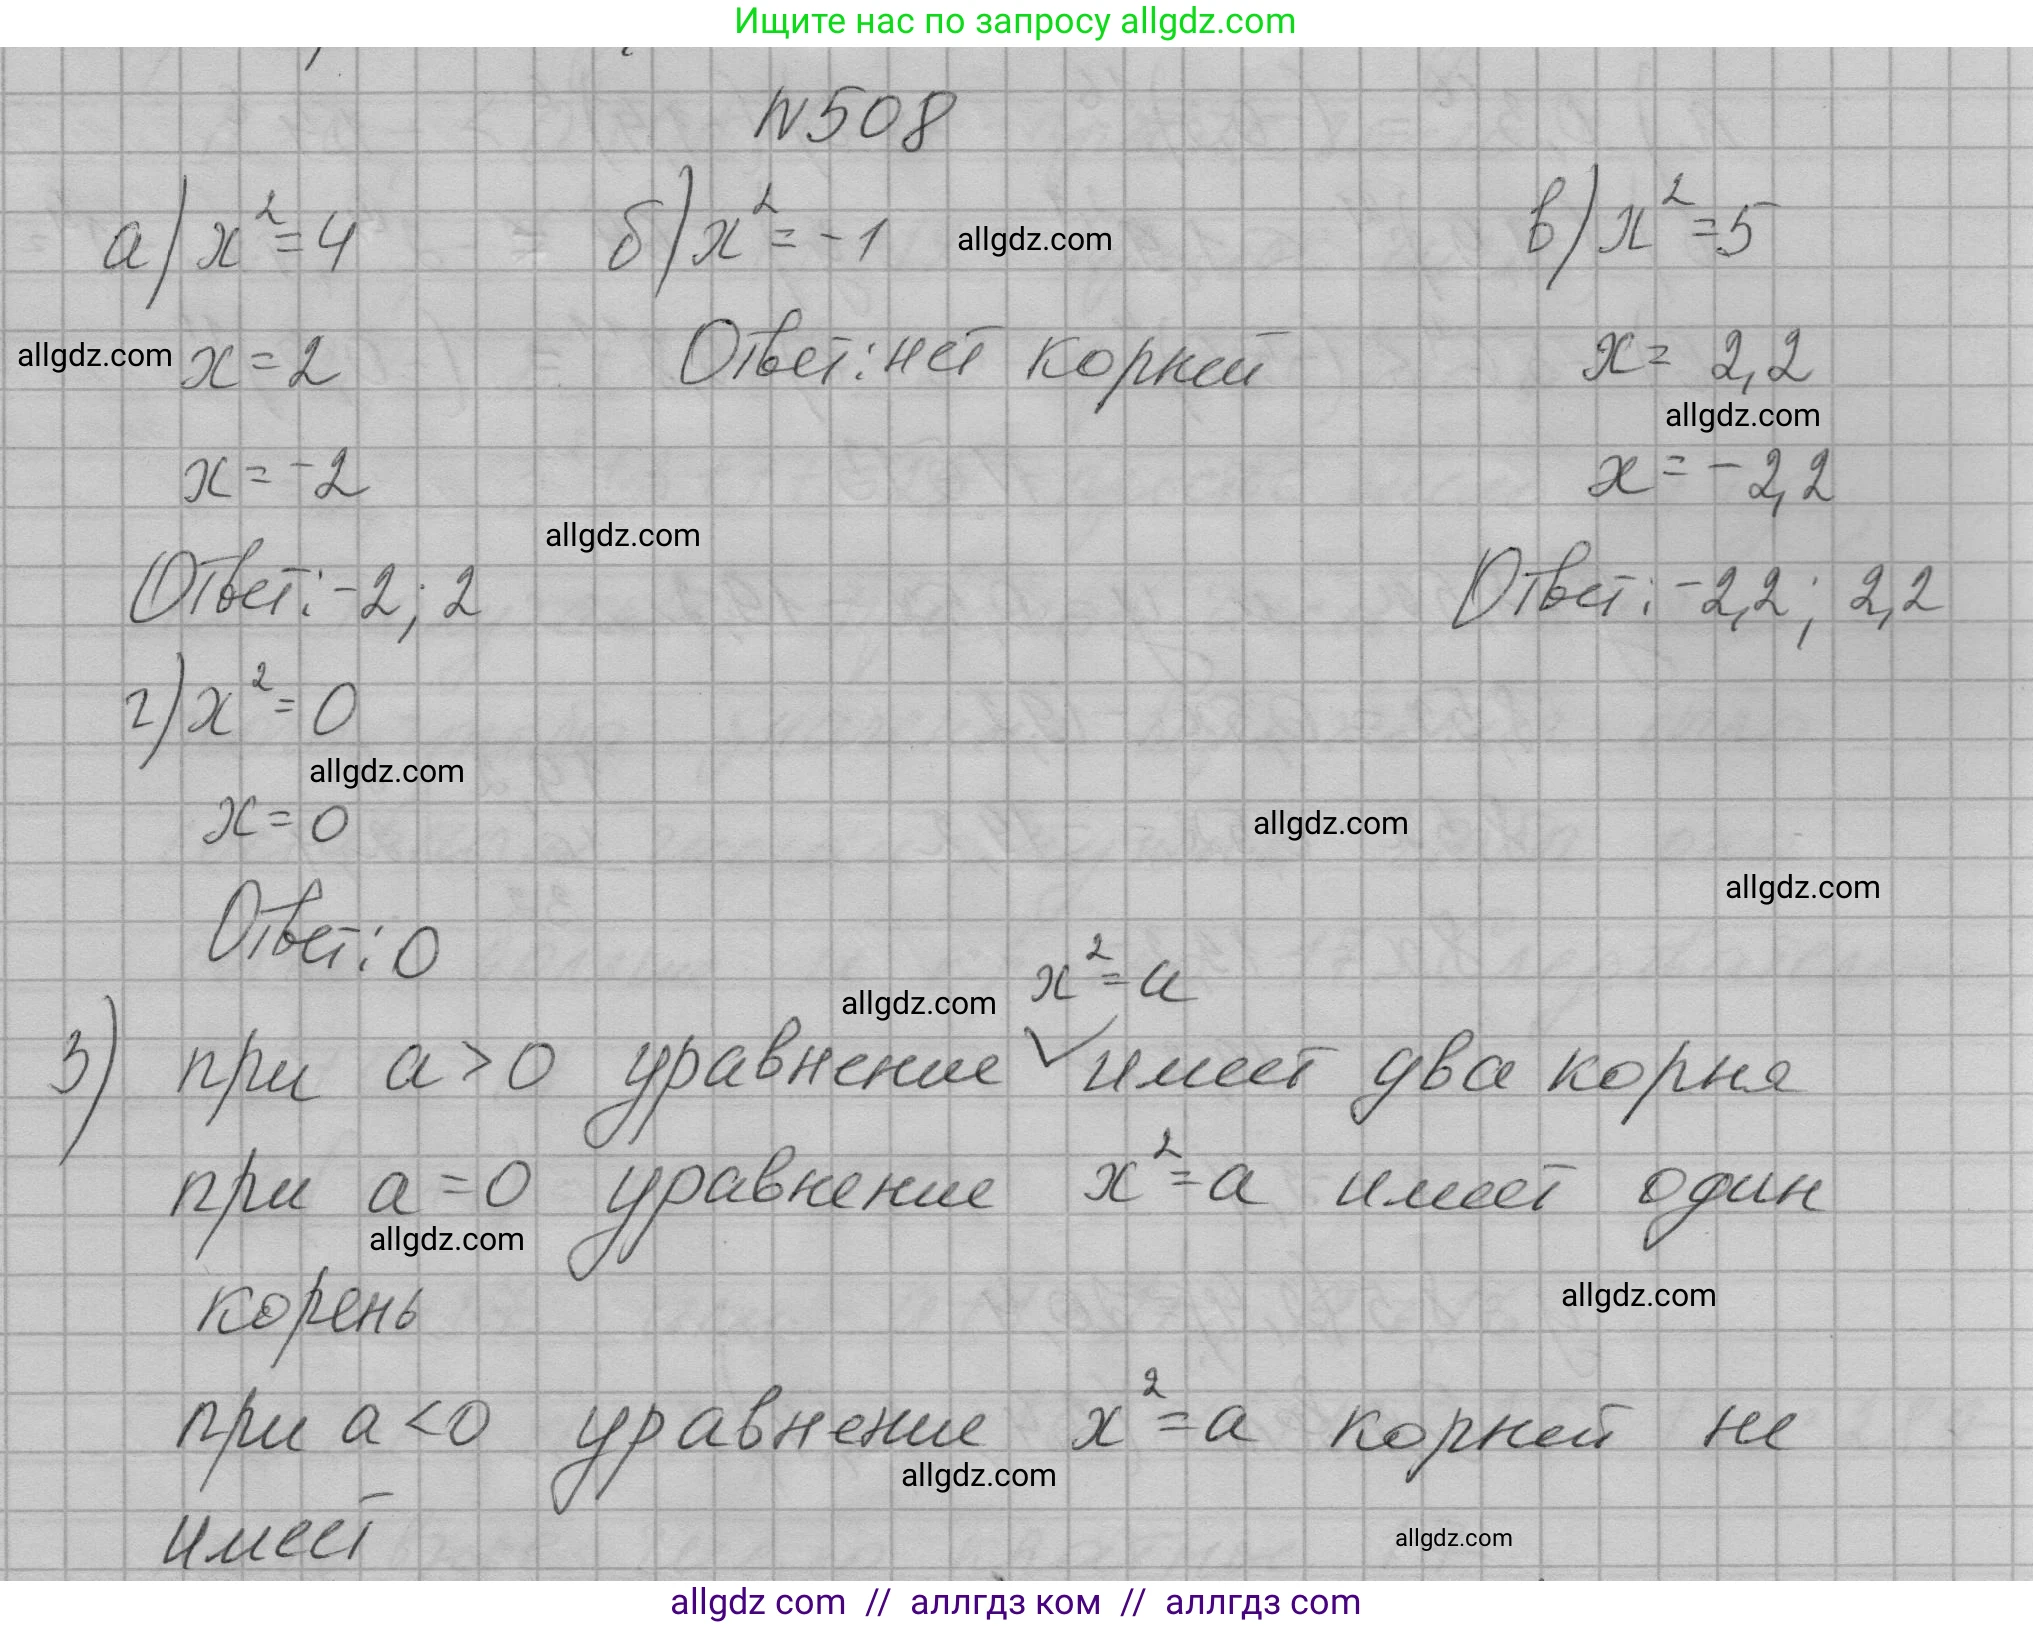 Ищите нас по запросу allgdz.com
N508
а) x²=4
б) x²=-1
allgdz.com
в) x²=5
allgdz.com
x=2
Ответ: нет корней
x= 2,2
allgdz.com
x=-2
x=-2,2
allgdz.com
Ответ: -2; 2
Ответ: -2,2; 2,2
г) x²=0
allgdz.com
x=0
allgdz.com
allgdz.com
Ответ: 0
allgdz.com
x²=a
3) при a>0 уравнение ✓ имеет два корня
при a=0 уравнение x²=a имеет один
allgdz.com
корень
allgdz.com
при a<0 уравнение x²=a корней не
allgdz.com
имеет
allgdz.com
allgdz com // аллгдз ком // аллгдз com